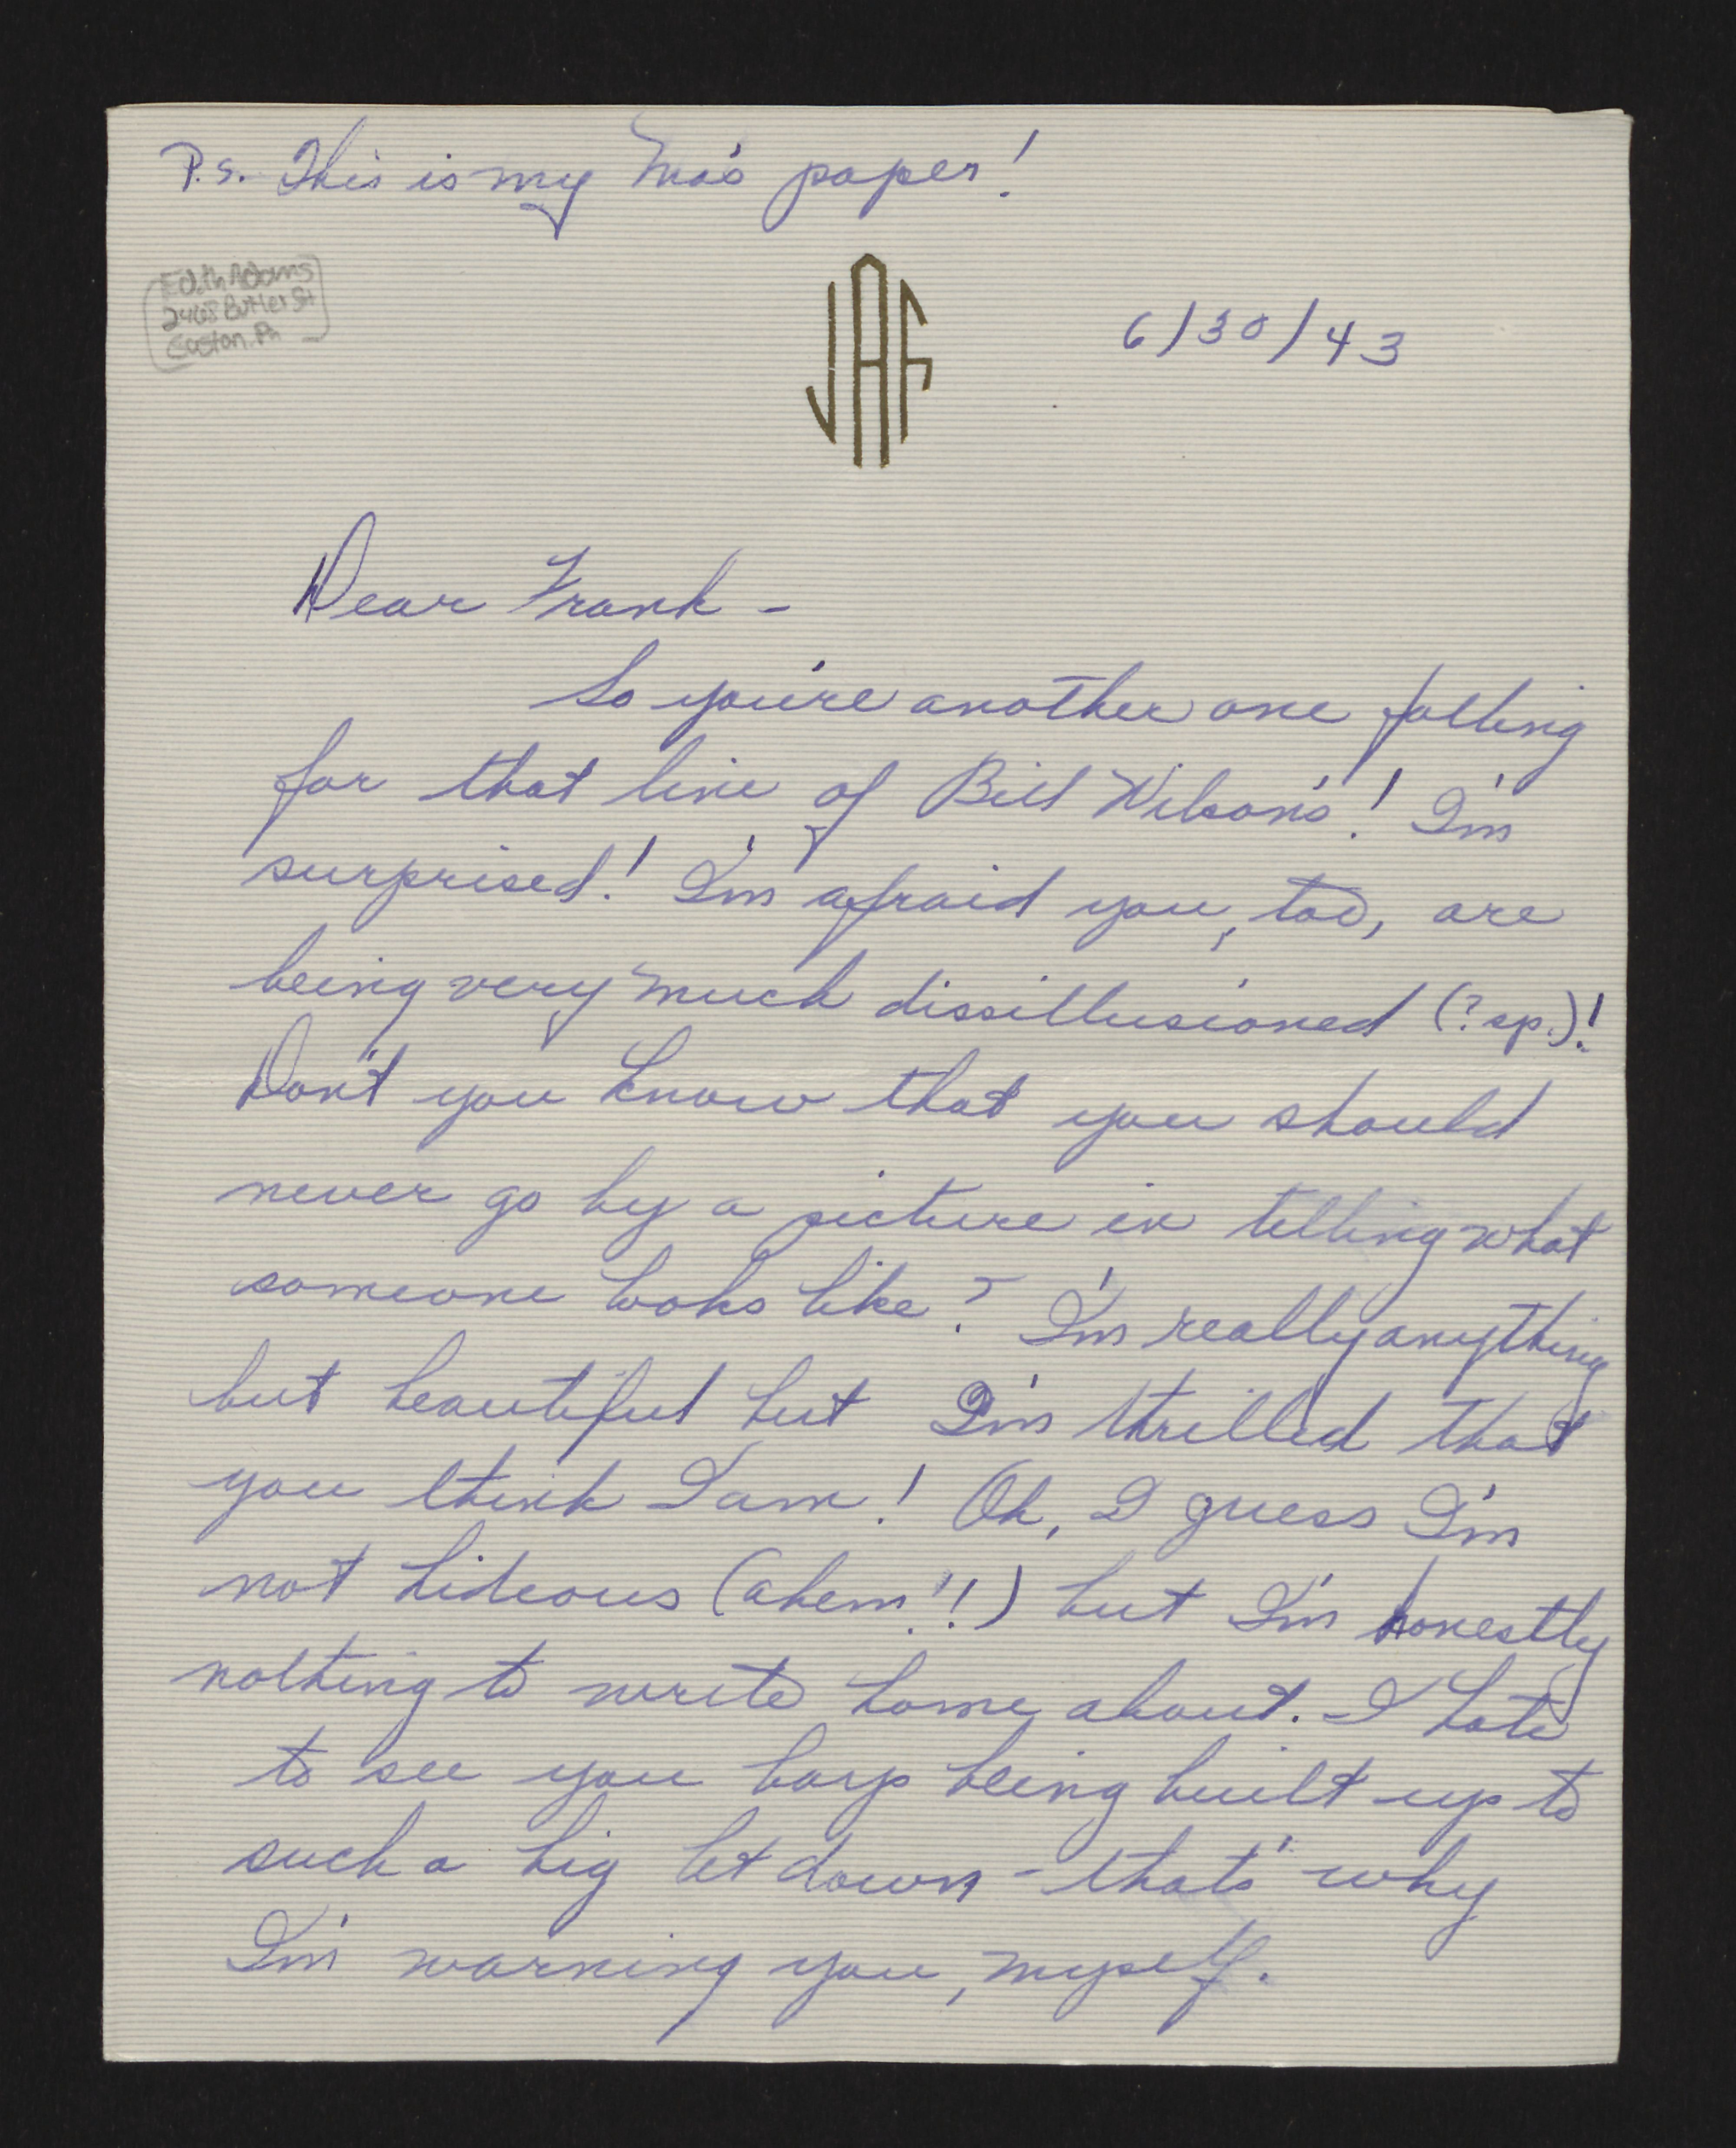 P.S. This is my Ma's paper!
Edith Adams
2468 Butler St
Easton, Pa
JAF
6/30/43
Dear Frank -
So you're another one falling
for that line of Bill Wilson's! I'm
surprised! I'm afraid you, too, are
being very much dissillusioned (? sp.)!
Don't you know that you should
never go by a picture in telling what
someone looks like? I'm really anything
but beautiful but I'm thrilled that
you think I am! Oh, I guess I'm
not hideous (ahem!!) but I'm honestly
nothing to write home about. I hate
to see you boys being built up to
such a big let down - that's why
I'm warning you, myself.